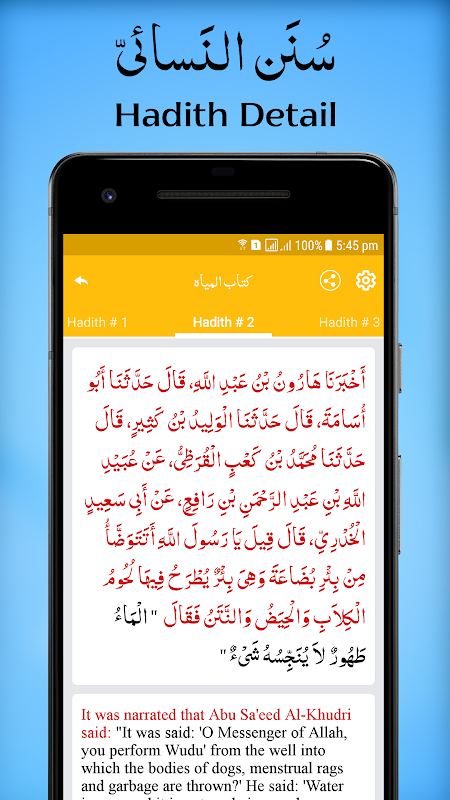 سُنَن النَسائىّ
Hadith Detail
100% 5:45 pm
كتاب المياه
Hadith # 1 Hadith # 2 Hadith # 3
أَخْبَرَنَا هَارُونُ بْنُ عَبْدِ اللَّهِ، قَالَ حَدَّثَنَا أَبُو
أُسَامَةَ، قَالَ حَدَّثَنَا الْوَلِيدُ بْنُ كَثِيرٍ، قَالَ
حَدَّثَنَا مُحَمَّدُ بْنُ كَعْبٍ الْقُرَظِيُّ، عَنْ عُبَيْدِ
اللَّهِ بْنِ عَبْدِ الرَّحْمَنِ بْنِ رَافِعٍ، عَنْ أَبِي سَعِيدٍ
الْخُدْرِيِّ، قَالَ قِيلَ يَا رَسُولَ اللَّهِ أَتَتَوَضَّأُ
مِنْ بِئْرِ بُضَاعَةَ وَهِيَ بِئْرٌ يُطْرَحُ فِيهَا لُحُومُ
الْكِلاَبِ وَالْحِيَضُ وَالنَّتَنُ فَقَالَ " الْمَاءُ
طَهُورٌ لاَ يُنَجِّسُهُ شَىْءٌ "
It was narrated that Abu Sa'eed Al-Khudri
said: "It was said: 'O Messenger of Allah,
you perform Wudu' from the well into
which the bodies of dogs, menstrual rags
and garbage are thrown?' He said: 'Water